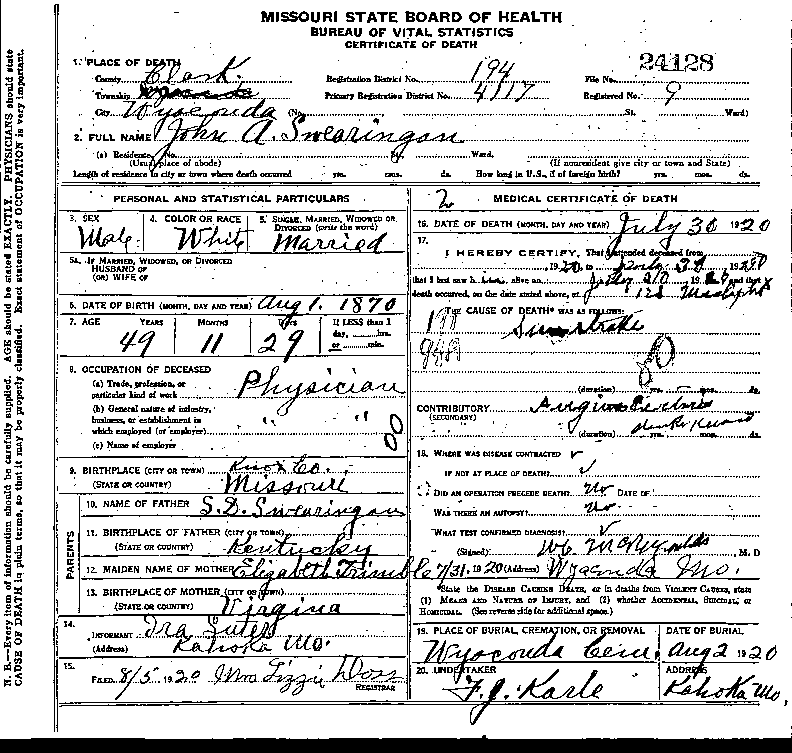 MISSOURI STATE BOARD OF HEALTH
BUREAU OF VITAL STATISTICS
CERTIFICATE OF DEATH
N. B.—Every item of information should be carefully supplied. AGE should be stated EXACTLY. PHYSICIANS should state
CAUSE OF DEATH in plain terms, so that it may be properly classified. Exact statement of OCCUPATION is very important.
1. PLACE OF DEATH
County Clark Registration District No. 194 File No. 24128
Township Primary Registration District No. 4117 Registered No. 9
City Wyaconda (No. St. Ward)
2. FULL NAME John A. Swearingon
(a) Residence. No. St. Ward.
(Usual place of abode) (If nonresident give city or town and State)
Length of residence in city or town where death occurred yrs. mos. ds. How long in U.S., if of foreign birth? yrs. mos. ds.
PERSONAL AND STATISTICAL PARTICULARS
3. SEX 4. COLOR OR RACE 5. SINGLE, MARRIED, WIDOWED OR
DIVORCED (write the word)
Male White Married
5A. IF MARRIED, WIDOWED, OR DIVORCED
HUSBAND OF
(OR) WIFE OF
6. DATE OF BIRTH (MONTH, DAY AND YEAR) Aug 1. 1870
7. AGE YEARS MONTHS DAYS If LESS than 1
day, hrs.
or min.
49 11 29
8. OCCUPATION OF DECEASED
(a) Trade, profession, or
particular kind of work Physician
(b) General nature of industry,
business, or establishment in
which employed (or employer) " "
(c) Name of employer
00
9. BIRTHPLACE (CITY OR TOWN) Knox Co.
(STATE OR COUNTRY) Missouri
PARENTS
10. NAME OF FATHER S. D. Swearingon
11. BIRTHPLACE OF FATHER (CITY OR TOWN)
(STATE OR COUNTRY) Kentucky
12. MAIDEN NAME OF MOTHER Elizabeth Trimble
13. BIRTHPLACE OF MOTHER (CITY OR TOWN)
(STATE OR COUNTRY) Virginia
14.
INFORMANT Ira
(Address) Kahoka Mo.
15.
FILED 8/5 1920 Mrs Lizzie Doss
REGISTRAR
2 MEDICAL CERTIFICATE OF DEATH
16. DATE OF DEATH (MONTH, DAY AND YEAR) July 30 1920
17.
I HEREBY CERTIFY, That I attended deceased from
1920 to 1920
that I last saw h alive on and that
death occurred, on the date stated above, at
THE CAUSE OF DEATH* WAS AS FOLLOWS:
Sunstroke
(duration) yrs. mos. ds.
CONTRIBUTORY
(SECONDARY)
(duration) yrs. mos. ds.
18. WHERE WAS DISEASE CONTRACTED
IF NOT AT PLACE OF DEATH?
DID AN OPERATION PRECEDE DEATH? No DATE OF
WAS THERE AN AUTOPSY? No
WHAT TEST CONFIRMED DIAGNOSIS?
(Signed) McReynolds M. D
7/31, 1920 (Address) Wyaconda Mo.
*State the DISEASE CAUSING DEATH, or in deaths from VIOLENT CAUSES, state
(1) MEANS AND NATURE OF INJURY, and (2) whether ACCIDENTAL, SUICIDAL, or
HOMICIDAL. (See reverse side for additional space.)
19. PLACE OF BURIAL, CREMATION, OR REMOVAL DATE OF BURIAL
Wyaconda Cem. Aug 2 1920
20. UNDERTAKER ADDRESS
F. J. Karle Kahoka Mo.